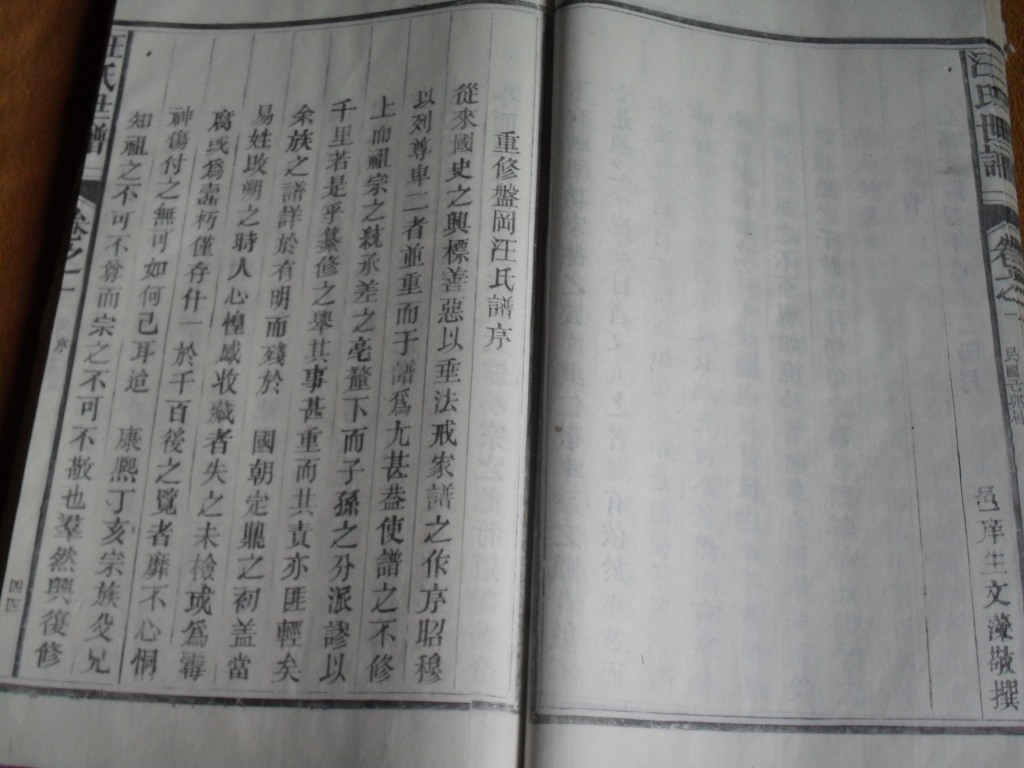 汪氏世譜 卷之一
邑庠生文藻敬撰
重修盤岡汪氏譜序
從來國史之興標善惡以垂法戒家譜之作序昭穆
以列尊卑二者並重而于譜爲尢甚葢使譜之不修
上而祖宗之承差之亳釐下而子孫之分派謬以
千里若是乎纂修之舉其事甚重而其責亦匪輕矣
余族之譜詳於有明而殘於 國朝定鼎之初盖當
易姓攺朔之時人心惶惑收藏者失之未檢或爲霉
腐或爲蠧朽僅存什一於千百後之覽者靡不心恫
神傷付之無可如何已耳迨 康熙丁亥宗族父兄
知祖之不可不尊而宗之不可不敬也羣然興復修
汪氏世譜 卷之一 序 四四